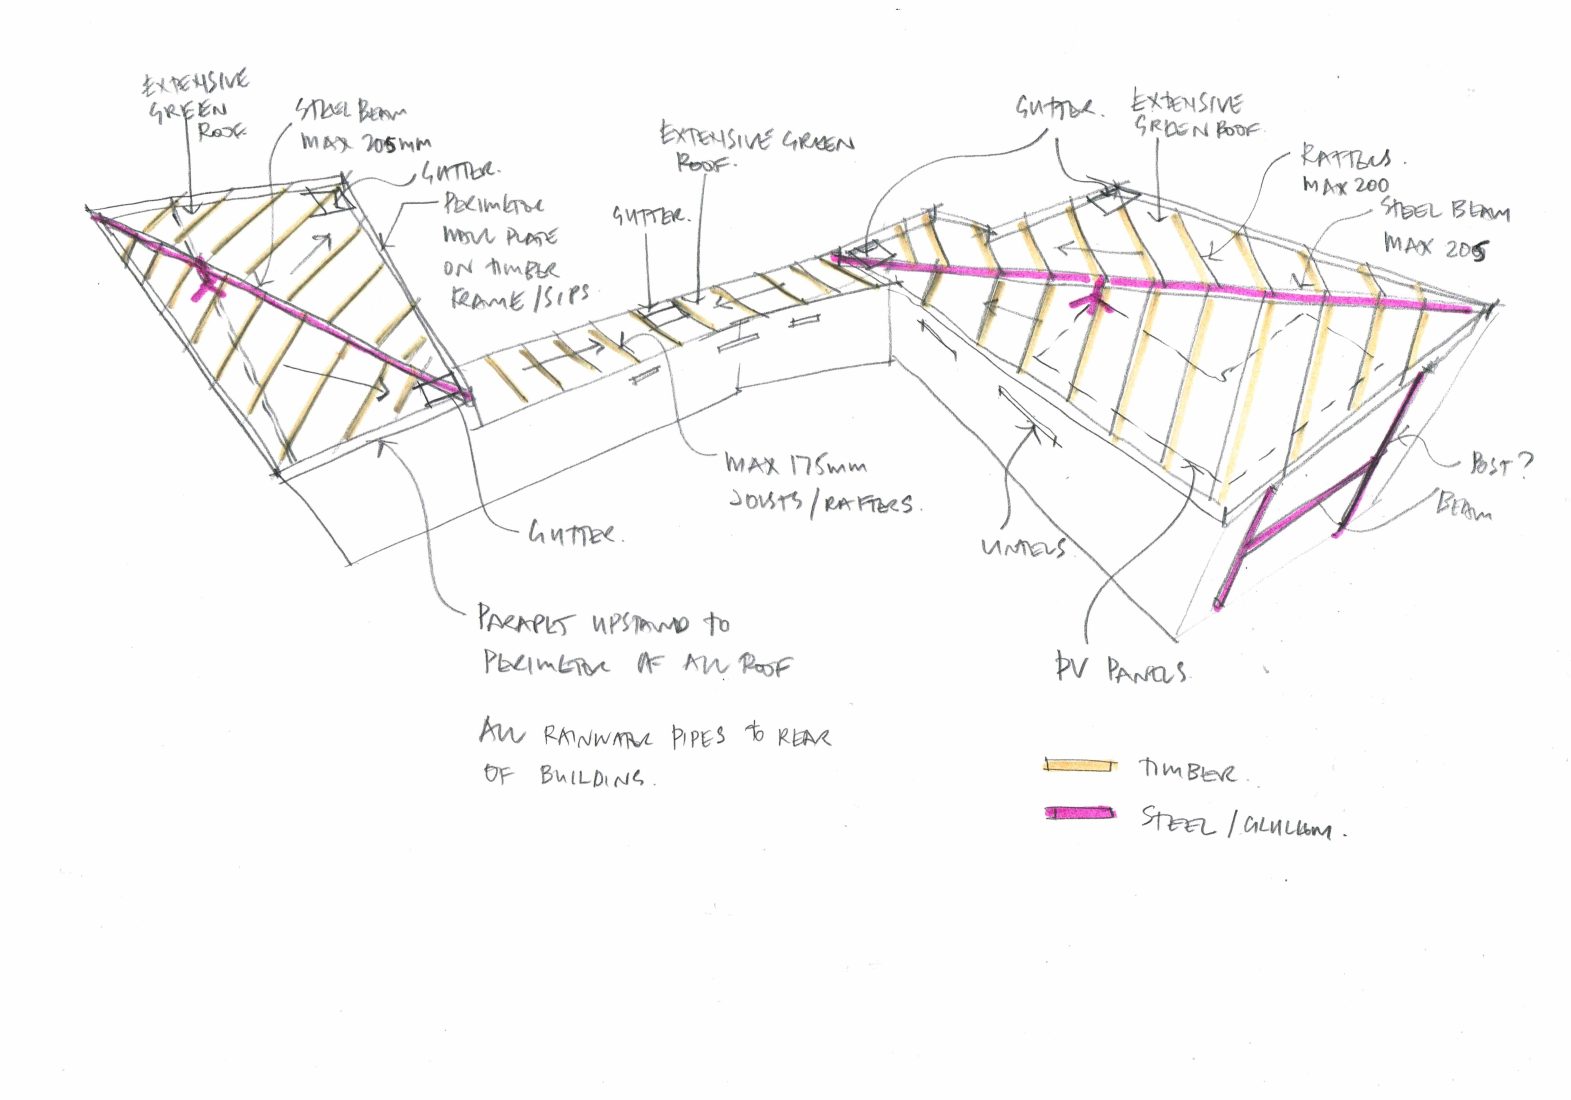 EXTENSIVE
GREEN
ROOF
STEEL BEAM
MAX 205mm
GUTTER.
PERIMETER
WALL PLATE
ON TIMBER
FRAME/SIPS
EXTENSIVE GREEN
ROOF.
GUTTER.
GUTTER.
EXTENSIVE
GREEN ROOF.
RAFTERS.
MAX 200
STEEL BEAM
MAX 205
MAX 175mm
JOISTS/RAFTERS.
GUTTER.
LINTELS
POST?
BEAM
PARAPET UPSTAND TO
PERIMETER OF ALL ROOF
PV PANELS
ALL RAINWATER PIPES TO REAR
OF BUILDING.
TIMBER.
STEEL/GLULAM.